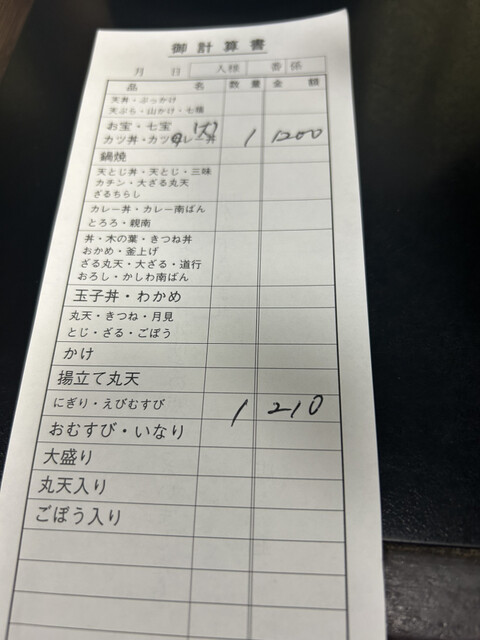 御計算書
月 日 人様 番 係
品 名 数 量 金 額
天丼・ぶっかけ
天ぷら・山かけ・七種
お宝・七宝 (大)
カツ丼・カツカレー丼 1 1200
鍋焼
天とじ丼・天とじ・三味
カチン・大ざる丸天
ざるちらし
カレー丼・カレー南ばん
とろろ・親南
丼・木の葉・きつね丼
おかめ・釜上げ
ざる丸天・大ざる・道行
おろし・かしわ南ばん
玉子丼・わかめ
丸天・きつね・月見
とじ・ざる・ごぼう
かけ
揚立て丸天
にぎり・えびむすび 1 210
おむすび・いなり
大盛り
丸天入り
ごぼう入り